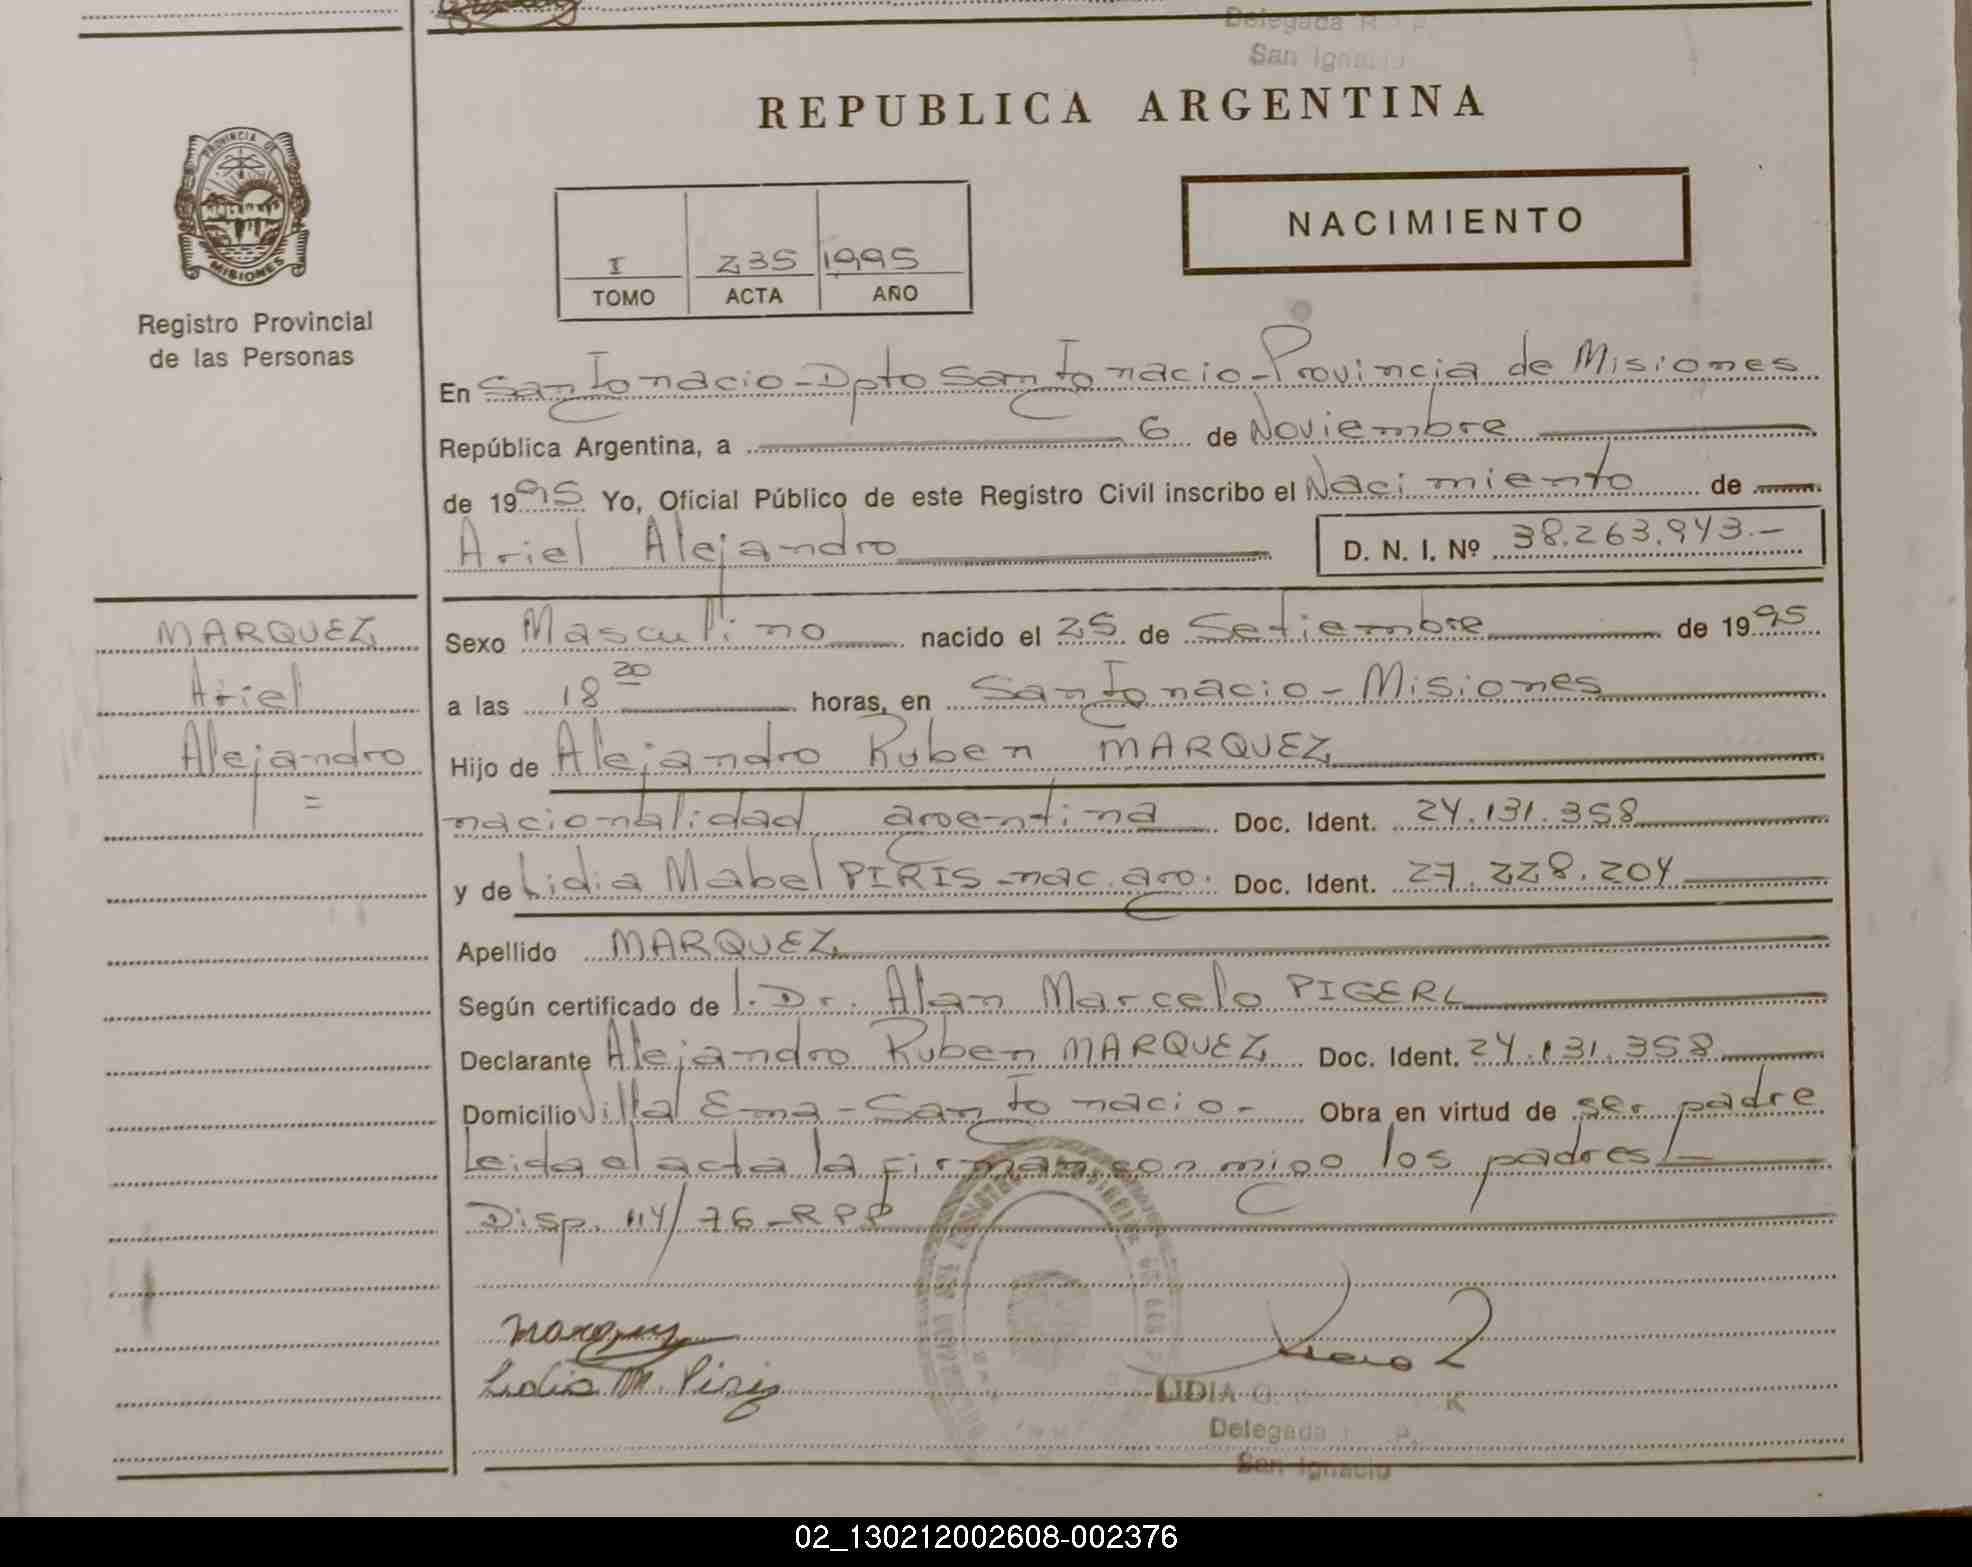 Delegada R. P.
San Ignacio
REPUBLICA ARGENTINA
PROVINCIA DE
MISIONES
Registro Provincial
de las Personas
I 235 1995
TOMO ACTA AÑO
NACIMIENTO
En San Ignacio - Dpto San Ignacio - Provincia de Misiones
República Argentina, a 6 de Noviembre
de 1995 Yo, Oficial Público de este Registro Civil inscribo el Nacimiento de
Ariel Alejandro D. N. I. Nº 38.263.943.-
MARQUEZ
Ariel
Alejandro
=
Sexo Masculino nacido el 25 de Setiembre de 1995
a las 18 20 horas, en San Ignacio - Misiones
Hijo de Alejandro Ruben MARQUEZ
nacionalidad argentina Doc. Ident. 24.131.358
y de Lidia Mabel PIRIS - nac. arg. Doc. Ident. 27.228.204
Apellido MARQUEZ
Según certificado de l. Dr. Alan Marcelo PIGERL
Declarante Alejandro Ruben MARQUEZ Doc. Ident. 24.131.358
Domicilio Villa Ema - San Ignacio - Obra en virtud de ser padre
Leida el acta la firman con migo los padres/-
Disp. 114/76 - RPP
Marquez
Lidia M. Piris
LIDIA
Delegada
San Ignacio
02_130212002608-002376